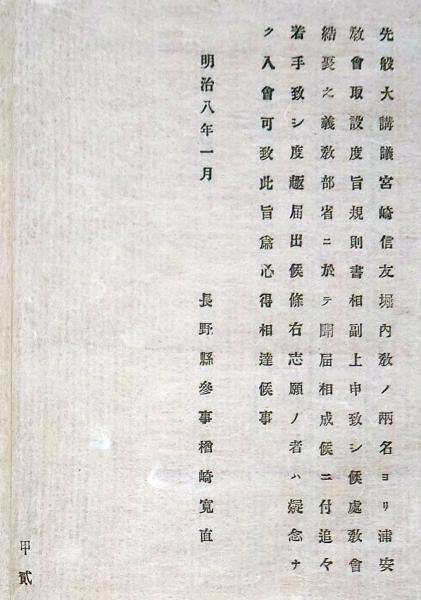 先般大講議宮崎信友堀内敎ノ兩名ヨリ浦安
敎會取設度旨規則書相副上申致シ候處敎會
結憂之義敎部省ニ於テ聞届相成候ニ付追々
着手致シ度趣届出候條右志願ノ者ハ疑念ナ
ク入會可致此旨爲心得相達候事
明治八年一月
長野縣參事楢崎寬直
甲貳